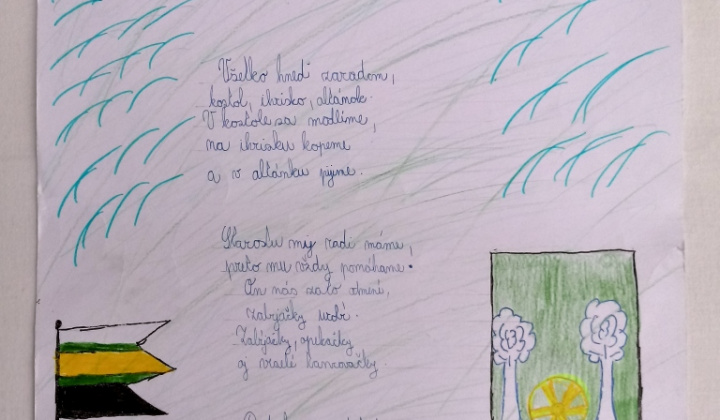 Všetko hneď zaradom,
kostol, ihrisko, altánok.
V kostole sa modlíme,
na ihrisku kopeme
a v altánku pijime.
Starostu my radi máme,
preto mu vždy pomáhame.
On nás za to
zabíjačky urobí.
Zabíjačky, opekačky
aj veselé tancovačky.